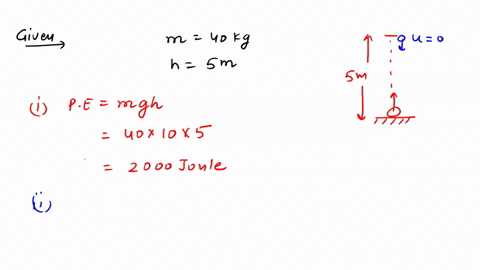 Given
m = 40 kg
h = 5m
u = 0
5m
(i) P.E = mgh
= 40×10×5
= 2000 Joule
(ii)